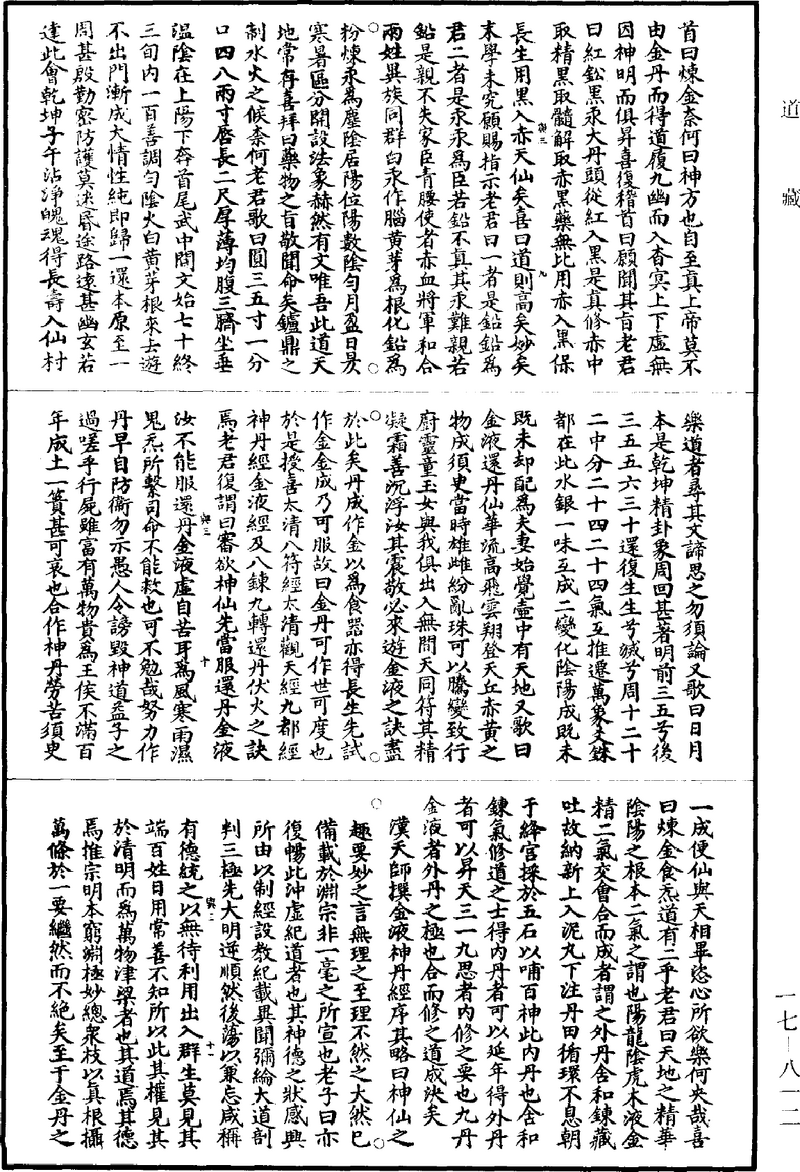 道藏
首曰煉金奈何曰神方也自至真上帝莫不
由金丹而得道履九幽而入杳冥上下虛無
因神明而俱昇喜復稽首曰願聞其旨老君
曰紅鉛黑汞大丹頭從紅入黑是真修赤中
取精黑取髓解取赤黑藥無比用赤入黑保
長生用黑入赤天仙矣喜曰道則高矣妙矣
末學未究願賜指示老君曰一者是鉛鉛為
君二者是汞汞為臣若鉛不真其汞難親若
鉛是親不失家臣青腰使者赤血將軍和合
兩姓異族同群白汞作腦黃芽為根化鉛為
粉煉汞為塵陰居陽位陽數陰勻月盈日昃
寒暑區分開設法象赫然有文唯吾此道天
地常存喜拜曰藥物之旨敬聞命矣鑪鼎之
制水火之候柰何老君歌曰圓三五寸一分
口四八兩寸唇長二尺厚薄均腹三臍坐垂
溫陰在上陽下奔首尾武中間文始七十終
三旬內一百善調勻陰火白黃芽根來去遊
不出門漸成大情性純即歸一還本原至一
周甚殷勤密防護莫迷昏途路遠甚幽玄若
達此會乾坤子午沾淨魄魂得長壽入仙村
樂道者尋其文諦思之勿須論又歌曰日月
本是乾坤精卦象周回甚著明前三五兮後
三五五六三十還復生生兮滅兮周十二十
二中分二十四二十四氣互推遷萬象爻銖
都在此水銀一味互成二變化陰陽成既未
既未却配為夫妻始覺壺中有天地又歌曰
金液還丹仙華流高飛雲翔登天丘赤黃之
物成須臾當時雄雌紛亂珠可以騰變致行
廚靈童玉女與我俱出入無間天同符其精
凝霜善沉浮汝其震敬必來遊金液之訣盡
於此矣丹成作金以為食器亦得長生先試
作金金成乃可服故曰金丹可作世可度也
於是授喜太清八符經太清觀天經九都經
神丹經金液經及八鍊九轉還丹伏火之訣
焉老君復謂曰審欲神仙先當服還丹金液
汝不能服還丹金液虛自苦耳為風寒雨濕
鬼炁所繫司命不能救也可不勉哉努力作
丹早自防衛勿示愚人令謗毀神道益子之
過嗟乎行屍雖富有萬物貴為王侯不滿百
年成土一簣甚可哀也合作神丹勞苦須臾
一成便仙與天相畢恣心所欲樂何央哉喜
曰煉金食炁道有二乎老君曰天地之精華
陰陽之根本二氣之謂也陽龍陰虎木液金
精二氣交會合而成者謂之外丹含和鍊藏
吐故納新上入泥丸下注丹田循環不息朝
于絳宮採於五石以哺百神此內丹也含和
鍊氣修道之士得內丹者可以延年得外丹
者可以昇天三一九思者內修之要也九丹
金液者外丹之極也合而修之道成決矣
漢天師撰金液神丹經序其略曰神仙之
趣要妙之言無理之至理不然之大然已
備載於淵宗非一毫之所宣也老子曰亦
復暢此沖虛紀道者也其神德之狀感興
所由以制經設教紀載異聞彌綸大道剖
判三極先大明逆順然後蕩以兼忘咸稱
有德統之以無待利用出入群生莫見其
端百姓日用常善不知所以此其權見其
於清明而為萬物津梁者也其道焉其德
焉推宗明本窮淵極妙總衆枝以真根攝
萬條於一要繼然而不絕矣至于金丹之
一七—八一二